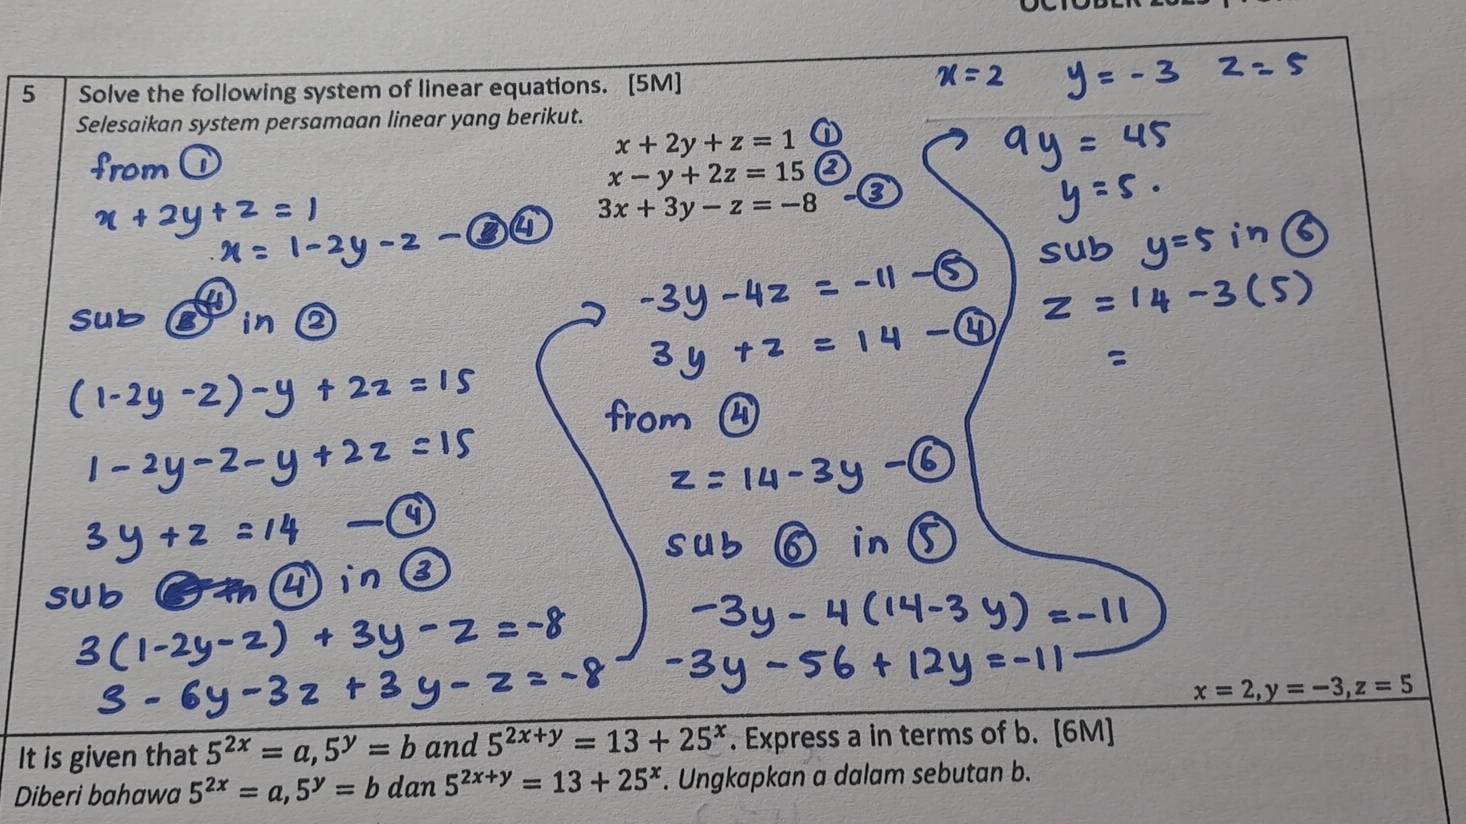 5 Solve the following system of linear equations. [5M]
Selesaikan system persamaan linear yang berikut.
x + 2y + z = 1 ①
x − y + 2z = 15 ②
3x + 3y − z = −8 -③
from ①
x + 2y + z = 1
x = 1-2y-z - ④
sub ④ in ②
(1-2y-z)-y + 2z = 15
1-2y-z-y+2z = 15
3y+z = 14 - ④
sub ④ in ③
3(1-2y-z) + 3y-z = -8
3-6y-3z+3y-z = -8
-3y-4z = -11 - ⑤
3y+z = 14 - ④
from ④
z = 14-3y - ⑥
sub ⑥ in ⑤
-3y-4(14-3y) = -11
-3y-56+12y = -11
x=2 y=-3 z=5
9y = 45
y=5.
sub y=5 in ⑥
z = 14-3(5)
=
x = 2, y = −3, z = 5
It is given that 5^{2x} = a, 5^y = b and 5^{2x+y} = 13 + 25^x. Express a in terms of b. [6M]
Diberi bahawa 5^{2x} = a, 5^y = b dan 5^{2x+y} = 13 + 25^x. Ungkapkan a dalam sebutan b.